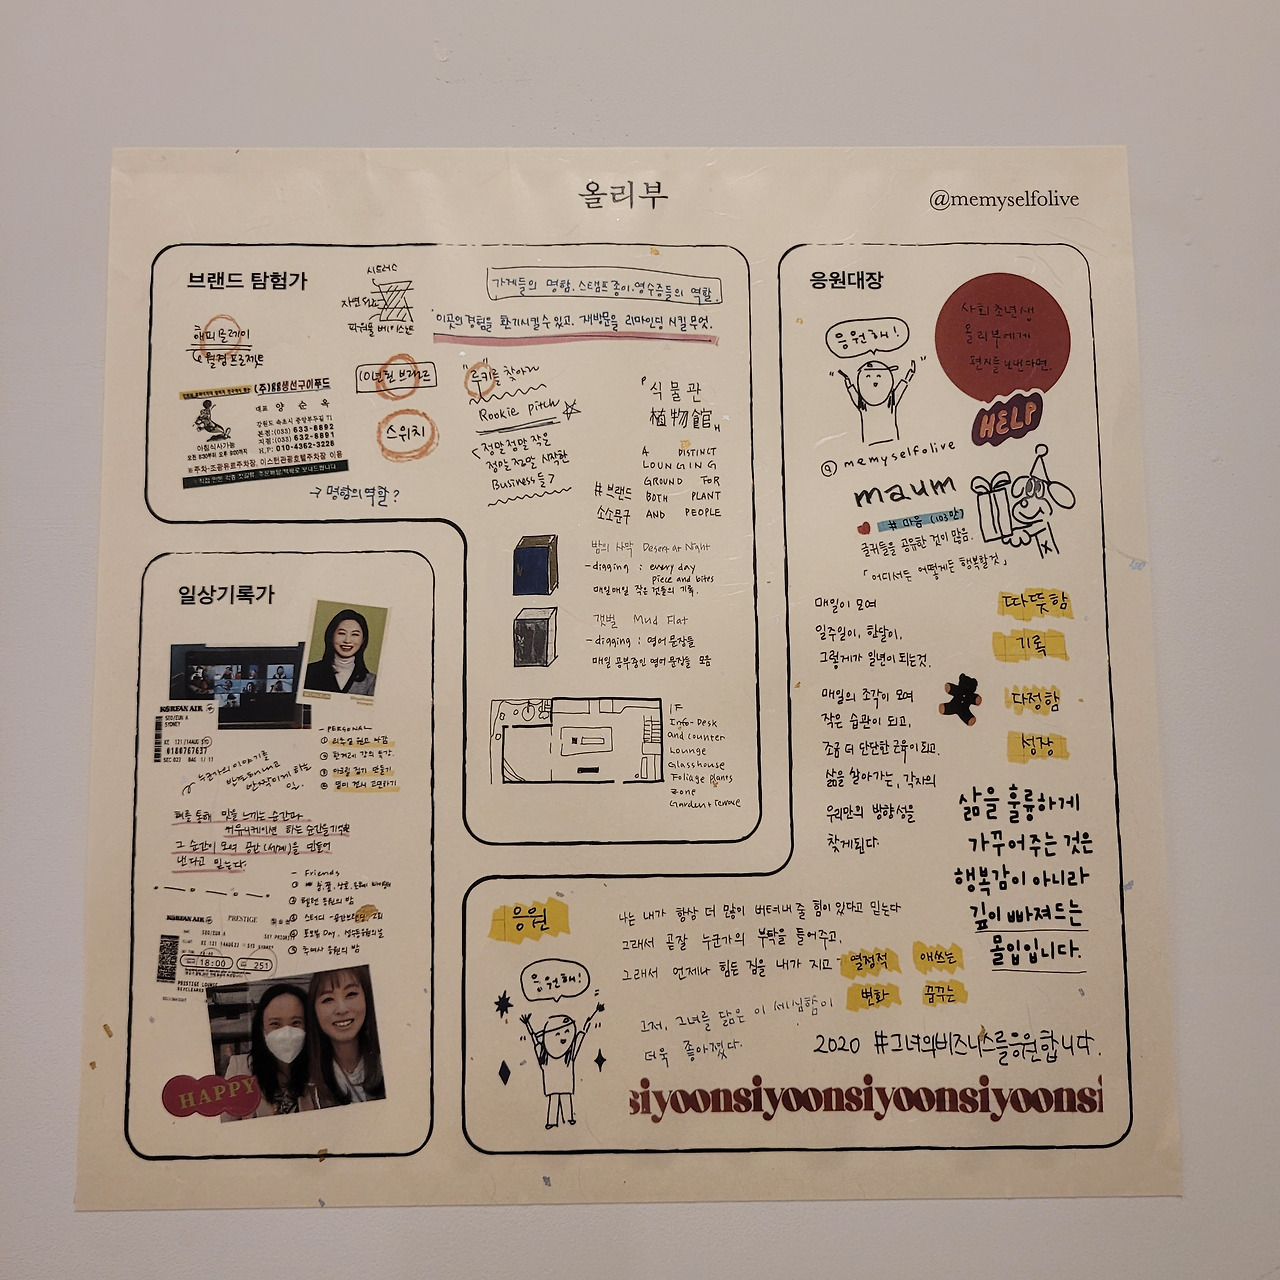 올리부
@memyselfolive
브랜드 탐험가
시트러스
파워풀 베이스노트
해피 플레이
월경 프로젝트
10년 된 브랜드
스위치
(주)88생선구이푸드
대표 양 순 옥
강원도 속초시 중앙부두길 71
본점:(033) 633-8892
지점:(033) 632-8891
H.P: 010-4362-3228
아침식사가능
오전 8:30부터 오후 9:00까지
※주차·조광유료주차장, 이스턴관광호텔주차장 이용
→ 명함의 역할?
가게들의 명함, 스탬프 종이, 영수증들의 역할.
"이곳의 경험을 환기시킬 수 있고, 재방문을 리마인딩 시킬 무엇.
"루키"를 찾아서
Rookie pitch
< 정말 정말 작은
정말 정말 시작한
Business들?
식물관
植物館
A DISTINCT
LOUNGING
GROUND FOR
BOTH PLANT
AND PEOPLE
#브랜드
소소문구
밤의 사막 Desert at Night
-digging : every day
piece and bites
매일매일 작은 것들의 기록.
갯벌 Mud Flat
-digging : 영어 문장들
매일 공부중인 영어 문장들 모음
1F
Info-Desk
and counter
Lounge
Glasshouse
Foliage plants
zone
Garden terrace
일상기록가
KOREAN AIR
SEO/EUN A
SYDNEY
KE 121/14AUG
0180767637
SEC 023 BAG 1/11
- PERSONAL -
누군가의 이야기를
반짝이게 하는
일.
맛을 느끼는 순간과
커뮤니케이션 하는 순간을 기억해
그 순간이 모여 공간(세계)을 만들어
낸다고 믿는다.
- Friends
KOREAN AIR
PRESTIGE
SEO/EUN A
SKY PRIORITY
KE 121 14AUG23
18:00
251
PRESTIGE LOUNGE
HAPPY
응원대장
응원해!
사회초년생
올리부에게
편지를 보낸다면.
HELP
@memyselfolive
maum
#마음 (103만)
글귀들을 공유한 것이 많음.
「어디서든 어떻게든 행복할 것」
매일이 모여
일주일이, 한달이,
그렇게가 일년이 되는것.
따뜻함
기록
매일의 조각이 모여
작은 습관이 되고,
조금 더 단단한 근육이 되고.
다정함
성장
삶을 찾아가는, 각자의
우리만의 방향성을
찾게된다.
삶을 훌륭하게
가꾸어주는 것은
행복감이 아니라
깊이 빠져드는
몰입입니다.
응원
응원해!
나는 내가 항상 더 많이 버텨내 줄 힘이 있다고 믿는다
그래서 곧잘 누군가의 부탁을 들어주고,
그래서 언제나 힘든 짐을 내가 지고
열정적
애쓰는
변화
꿈꾸는
그저, 그녀를 닮은 이 세심함이
더욱 좋아졌다.
2020 #그녀의비즈니스를응원합니다.
siyoonsiyoonsiyoonsiyoonsi